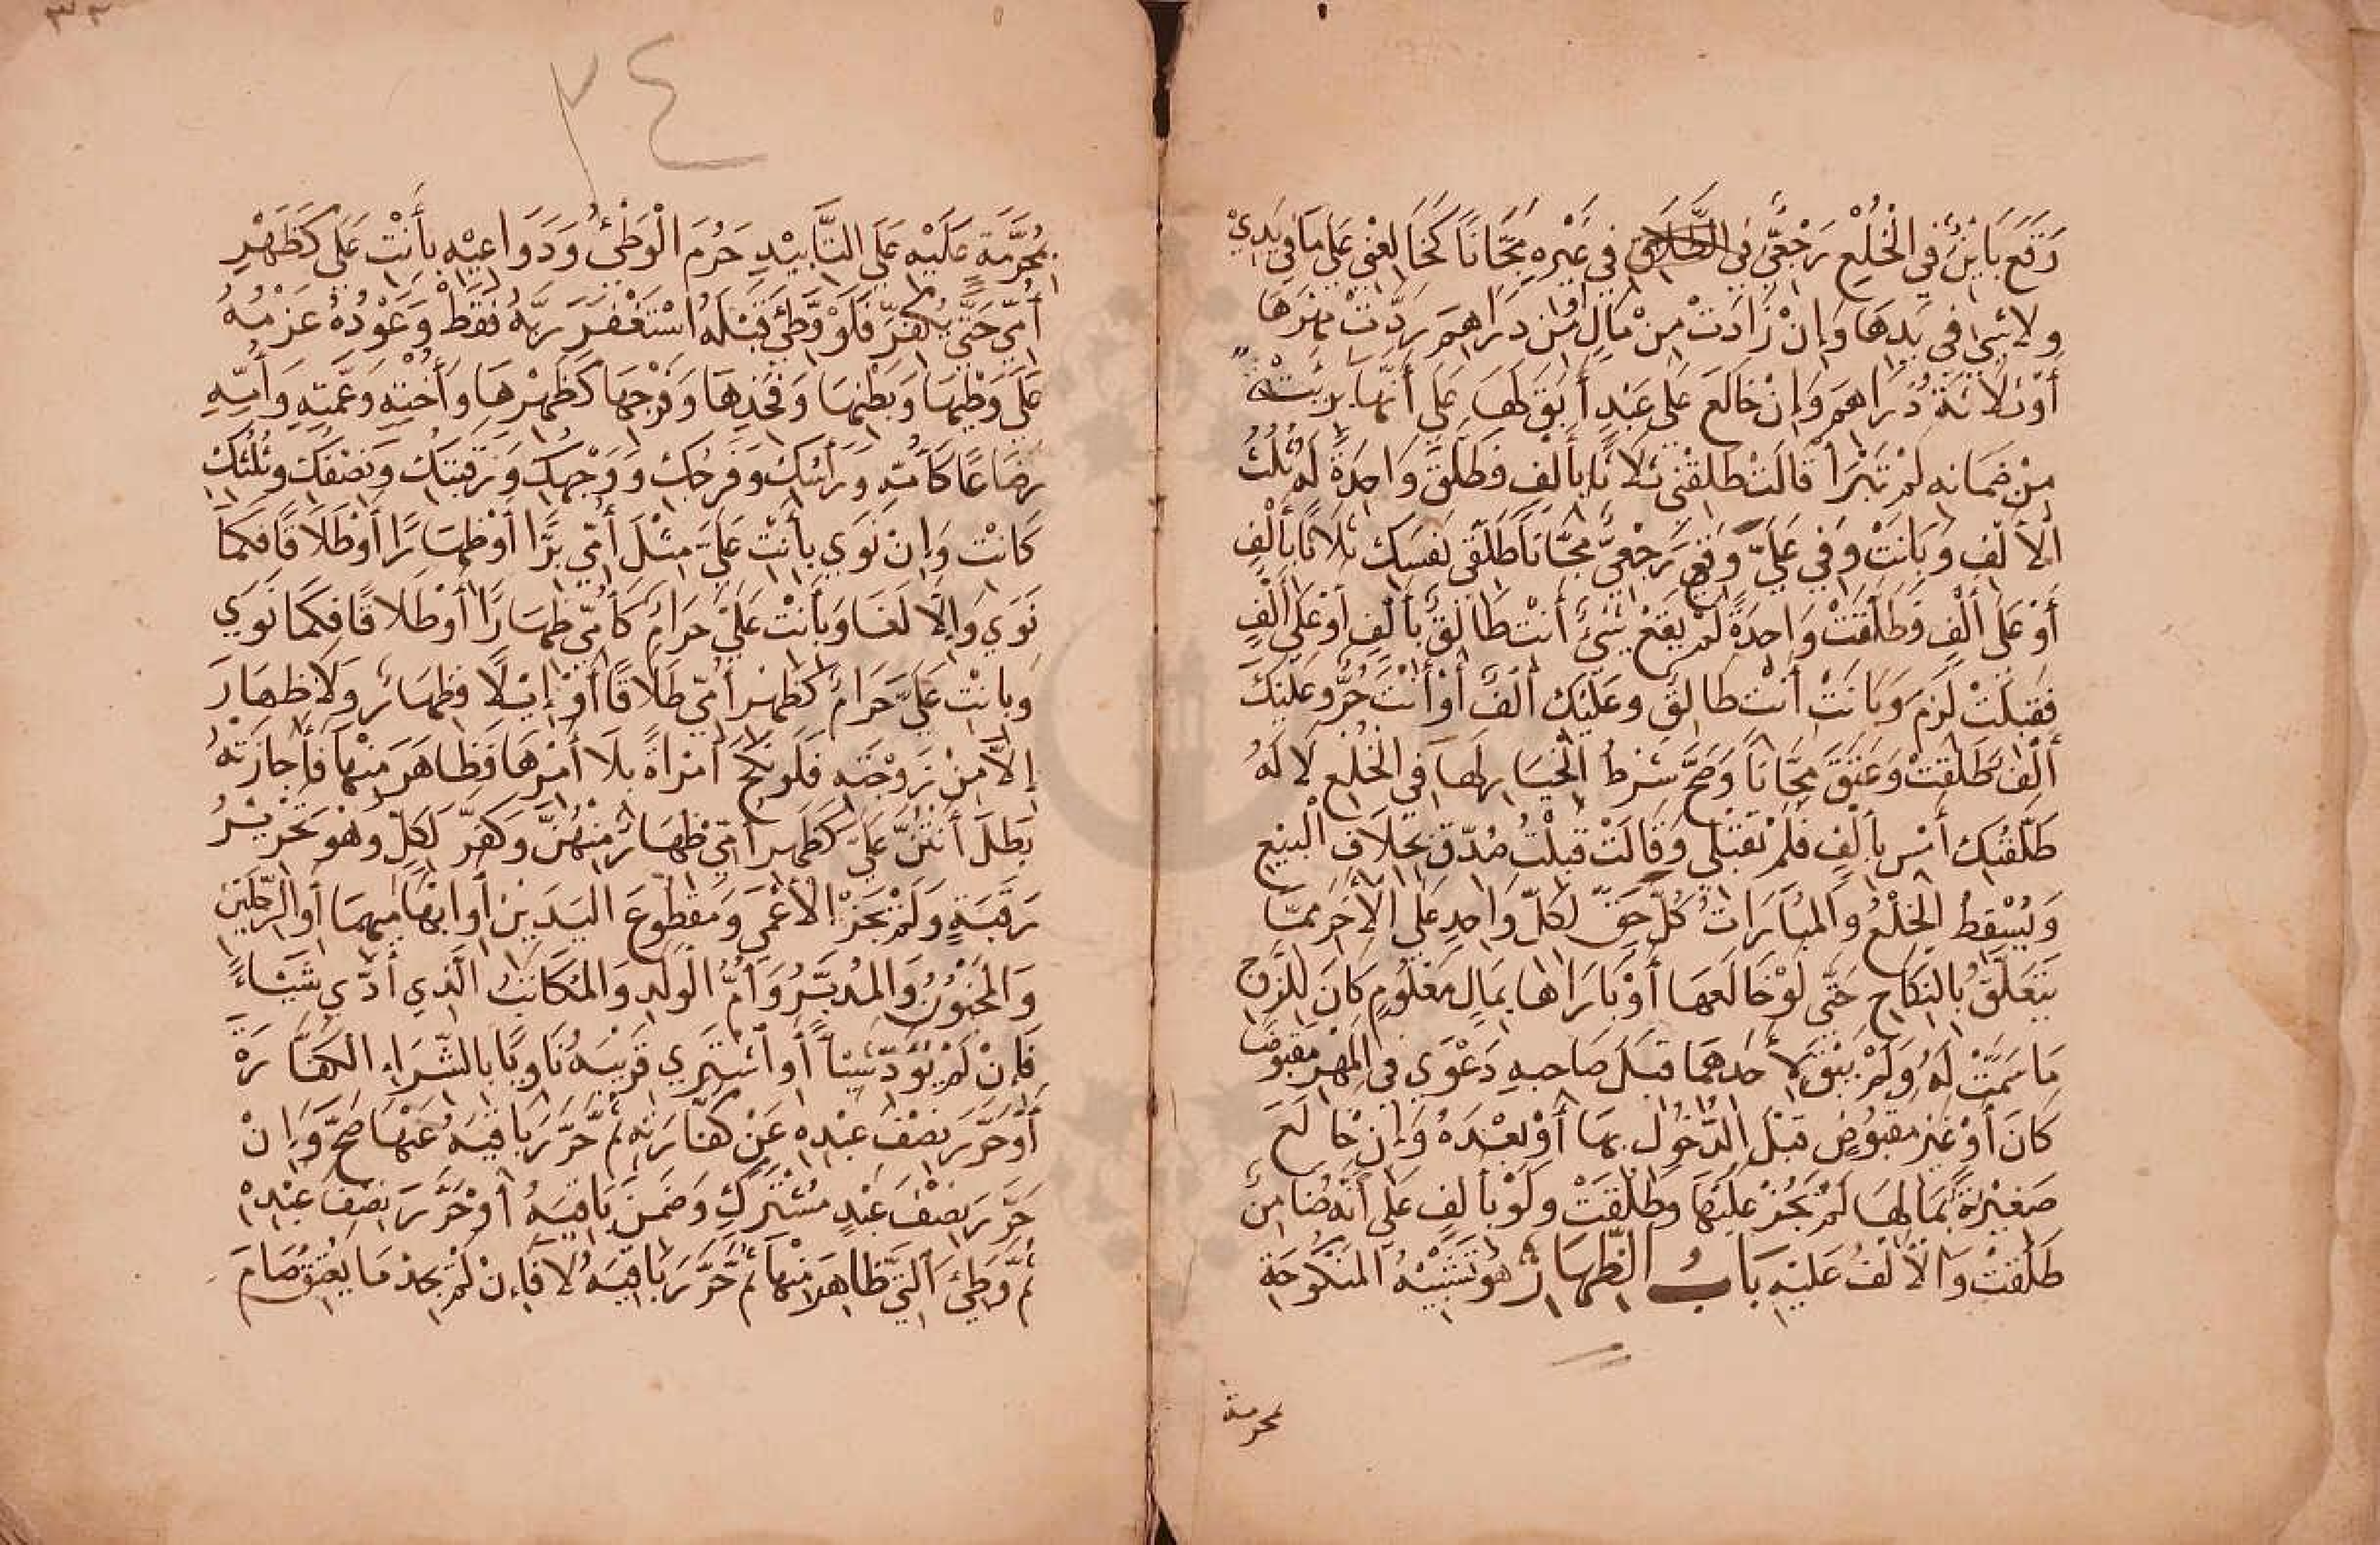 وَقَعَ بَايِنٌ فِي الْخُلْعِ رَجْعِيٌّ فِي غَيْرِهِ مَجَّانًا كَخَالِعْنِي عَلَى مَا فِي يَدِيْ
ولا شيئ في يَدِهَا وَإِنْ زَادَتْ مِنْ مَالٍ أَوْ مِنْ دَرَاهِمَ رَدَّتْ مَهْرَهَا
أَوْ ثَلَاثَةَ دَرَاهِمَ وَإِنْ خَالَعَ عَلَى عَبْدٍ أَبَقَ لَهَا عَلَى أَنَّهَا بَرِيئَةٌ
مِنْ ضَمَانِهِ لَمْ تَبْرَأْ قَالَتْ طَلِّقْنِي ثَلَاثًا بِأَلْفٍ فَطَلَّقَ وَاحِدَةً لَهُ ثُلُثُ
الْأَلْفِ وَبَانَتْ وَفِي عَلَيَّ وَقَعَ رَجْعِيٌّ مَجَّانًا طَلِّقِي نَفْسَكِ ثَلَاثًا بِأَلْفٍ
أَوْ عَلَى أَلْفٍ فَطَلَّقَتْ وَاحِدَةً لَمْ يَقَعْ شَيْئٌ أَنْتِ طَالِقٌ بِأَلْفٍ أَوْ عَلَى أَلْفٍ
فَقَبِلَتْ لَزِمَ وَبَانَتْ أَنْتِ طَالِقٌ وَعَلَيْكِ أَلْفٌ أَوْ أَنْتَ حُرٌّ وَعَلَيْكَ
أَلْفٌ طَلُقَتْ وَعَتَقَ مَجَّانًا وَصَحَّ شَرْطُ الْخِيَارِ لَهَا فِي الْخُلْعِ لَا لَهُ
طَلَّقْتُكِ أَمْسِ بِأَلْفٍ فَلَمْ تَقْبَلِي وَقَالَتْ قَبِلْتُ صُدِّقَ بِخِلَافِ الْبَيْعِ
وَيُسْقِطُ الْخُلْعُ وَالْمُبَارَاتُ كُلَّ حَقٍّ لِكُلِّ وَاحِدٍ عَلَى الْأَخَرِ مِمَّا
يَتَعَلَّقُ بِالنِّكَاحِ حَتَّى لَوْ خَالَعَهَا أَوْ بَارَاهَا بِمَالٍ مَعْلُومٍ كَانَ لِلزَّوْجِ
مَا سَمَّتْ لَهُ وَلَمْ يَبْقَ لِأَحَدِهِمَا قِبَلَ صَاحِبِهِ دَعْوَى فِي الْمَهْرِ مَقْبُوضًا
كَانَ أَوْ غَيْرَ مَقْبُوضٍ قَبْلَ الدُّخُولِ بِهَا أَوْ بَعْدَهُ وَإِنْ خَالَعَ
صَغِيْرَةً بِمَالِهَا لَمْ يَجُزْ عَلَيْهَا وَطَلُقَتْ وَلَوْ بِأَلْفٍ عَلَى أَنَّهُ ضَامِنٌ
طَلُقَتْ وَالْأَلْفُ عَلَيْهِ بَابُ الظِّهَارِ هُوَ تَشْبِيْهُ الْمَنْكُوحَةِ
محرمة
٣٤
بِمُحَرَّمَةٍ عَلَيْهِ عَلَى التَّأْبِيْدِ حَرُمَ الْوَطْئُ وَدَوَاعِيْهِ بِأَنْتِ عَلَيَّ كَظَهْرِ
أُمِّي حَتَّى يُكَفِّرَ فَلَوْ وَطِئَ قَبْلَهُ اسْتَغْفَرَ رَبَّهُ فَقَطْ وَعَوْدُهُ عَزْمُهُ
عَلَى وَطْئِهَا وَبَطْنُهَا وَفَخِذِهَا وَفَرْجِهَا كَظَهْرِهَا وَأُخْتِهِ وَعَمَّتِهِ وَأُمِّهِ
رِضَاعًا كَأُمِّهِ وَرَأْسُكِ وَفَرْجُكِ وَوَجْهُكِ وَرَقَبَتُكِ وَنِصْفُكِ وَثُلُثُكِ
كَأَنْتِ وَإِنْ نَوَى بِأَنْتِ عَلَيَّ مِثْلَ أُمِّي بِرًّا أَوْ ظِهَارًا أَوْ طَلَاقًا فَكَمَا
نَوَى وَإِلَّا لَغَا وَبِأَنْتِ عَلَيَّ حَرَامٌ كَأُمِّي ظِهَارًا أَوْ طَلَاقًا فَكَمَا نَوَى
وبانْتِ عَلَيَّ حَرَامٌ كَظَهْرِ أُمِّي طَلَاقًا أَوْ إِيْلًا فَظِهَارٌ وَلَا ظِهَارَ
إِلَّا مِنْ زَوْجَتِهِ فَلَوْ نَكَحَ امْرَأَةً بِلَا أَمْرِهَا فَظَاهَرَ مِنْهَا فَأَجَازَتْهُ
بَطَلَ أَنْتُنَّ عَلَيَّ كَظَهْرِ أُمِّي ظِهَارٌ مِنْهُنَّ وَكَفَّرَ لِكُلٍّ وَهُوَ تَحْرِيْرُ
رَقَبَةٍ وَلَمْ يَجُزْ الْأَعْمَى وَمَقْطُوعَ الْيَدَيْنِ أَوْ ابْهَامَيْهِمَا أَوِ الرِّجْلَيْنِ
وَالْمَجْنُونُ وَالْمُدَبَّرُ وَأُمُّ الْوَلَدِ وَالْمُكَاتَبُ الَّذِي أَدَّى شَيْئًا
فَإِنْ لَمْ يُؤَدِّ شَيْئًا أَوْ اشْتَرَى قَرِيْبَهُ نَاوِيًا بِالشِّرَاءِ الْكَفَّارَةَ
أَوْ حَرَّرَ نِصْفَ عَبْدِهِ عَنْ كَفَّارَتِهِ ثُمَّ حَرَّرَ بَاقِيَهُ عَنْهَا صَحَّ وَإِنْ
حَرَّرَ نِصْفَ عَبْدٍ مُشْتَرَكٍ وَضَمِنَ بَاقِيَهُ أَوْ حَرَّرَ نِصْفَ عَبْدِهْ
ثُمَّ وَطِئَ الَّتِي ظَاهَرَ مِنْهَا ثُمَّ حَرَّرَ بَاقِيَهُ لَا فَإِنْ لَمْ يَجِدْ مَا يُعْتِقُ صَامَ